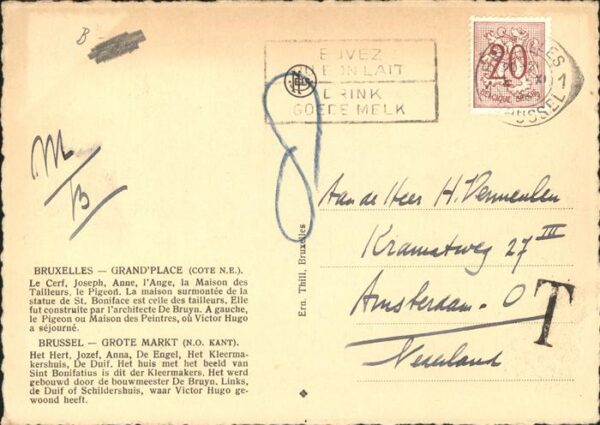 B
BUVEZ
DU BON LAIT
DRINK
GOEDE MELK
20
BELGIQUE BELGIE
1
BRUSSEL
M/B
8
Aan de Heer H. Vermeulen
Kramatweg 27 III
Amsterdam - O
Nederland
T
Ern. Thill, Bruxelles
BRUXELLES — GRAND'PLACE (COTE N.E.)
Le Cerf, Joseph, Anne, l'Ange, la Maison des
Tailleurs, le Pigeon. La maison surmontée de la
statue de St. Boniface est celle des tailleurs, Elle
fut construite par l'architecte De Bruyn. A gauche,
le Pigeon ou Maison des Peintres, où Victor Hugo
a séjourné.
BRUSSEL — GROTE MARKT (N.O. KANT).
Het Hert, Jozef, Anna, De Engel, Het Kleerma-
kershuis, De Duif. Het huis met het beeld van
Sint Bonifatius is dit der Kleermakers. Het werd
gebouwd door de bouwmeester De Bruyn. Links,
de Duif of Schildershuis, waar Victor Hugo ge-
woond heeft.